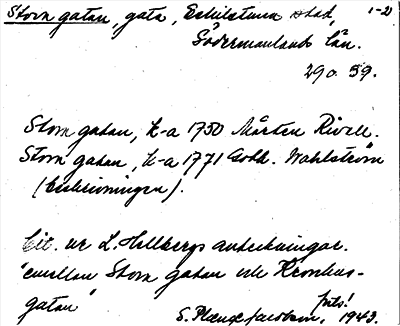 Stora gatan, gata, Eskilstuna stad, 1-2)
Södermanlands län.
290 59.
Stora gatan, k-a 1750 Mårten Rivell.
Stora gatan, k-a 1771 Gotth. Wahlström
(beskrivningen).
Cit. ur L. Hellbergs anteckningar.
"emellan Stora gatan och Kronhus-
gatan" juts!
S. Plaux Jacobson, 1943.